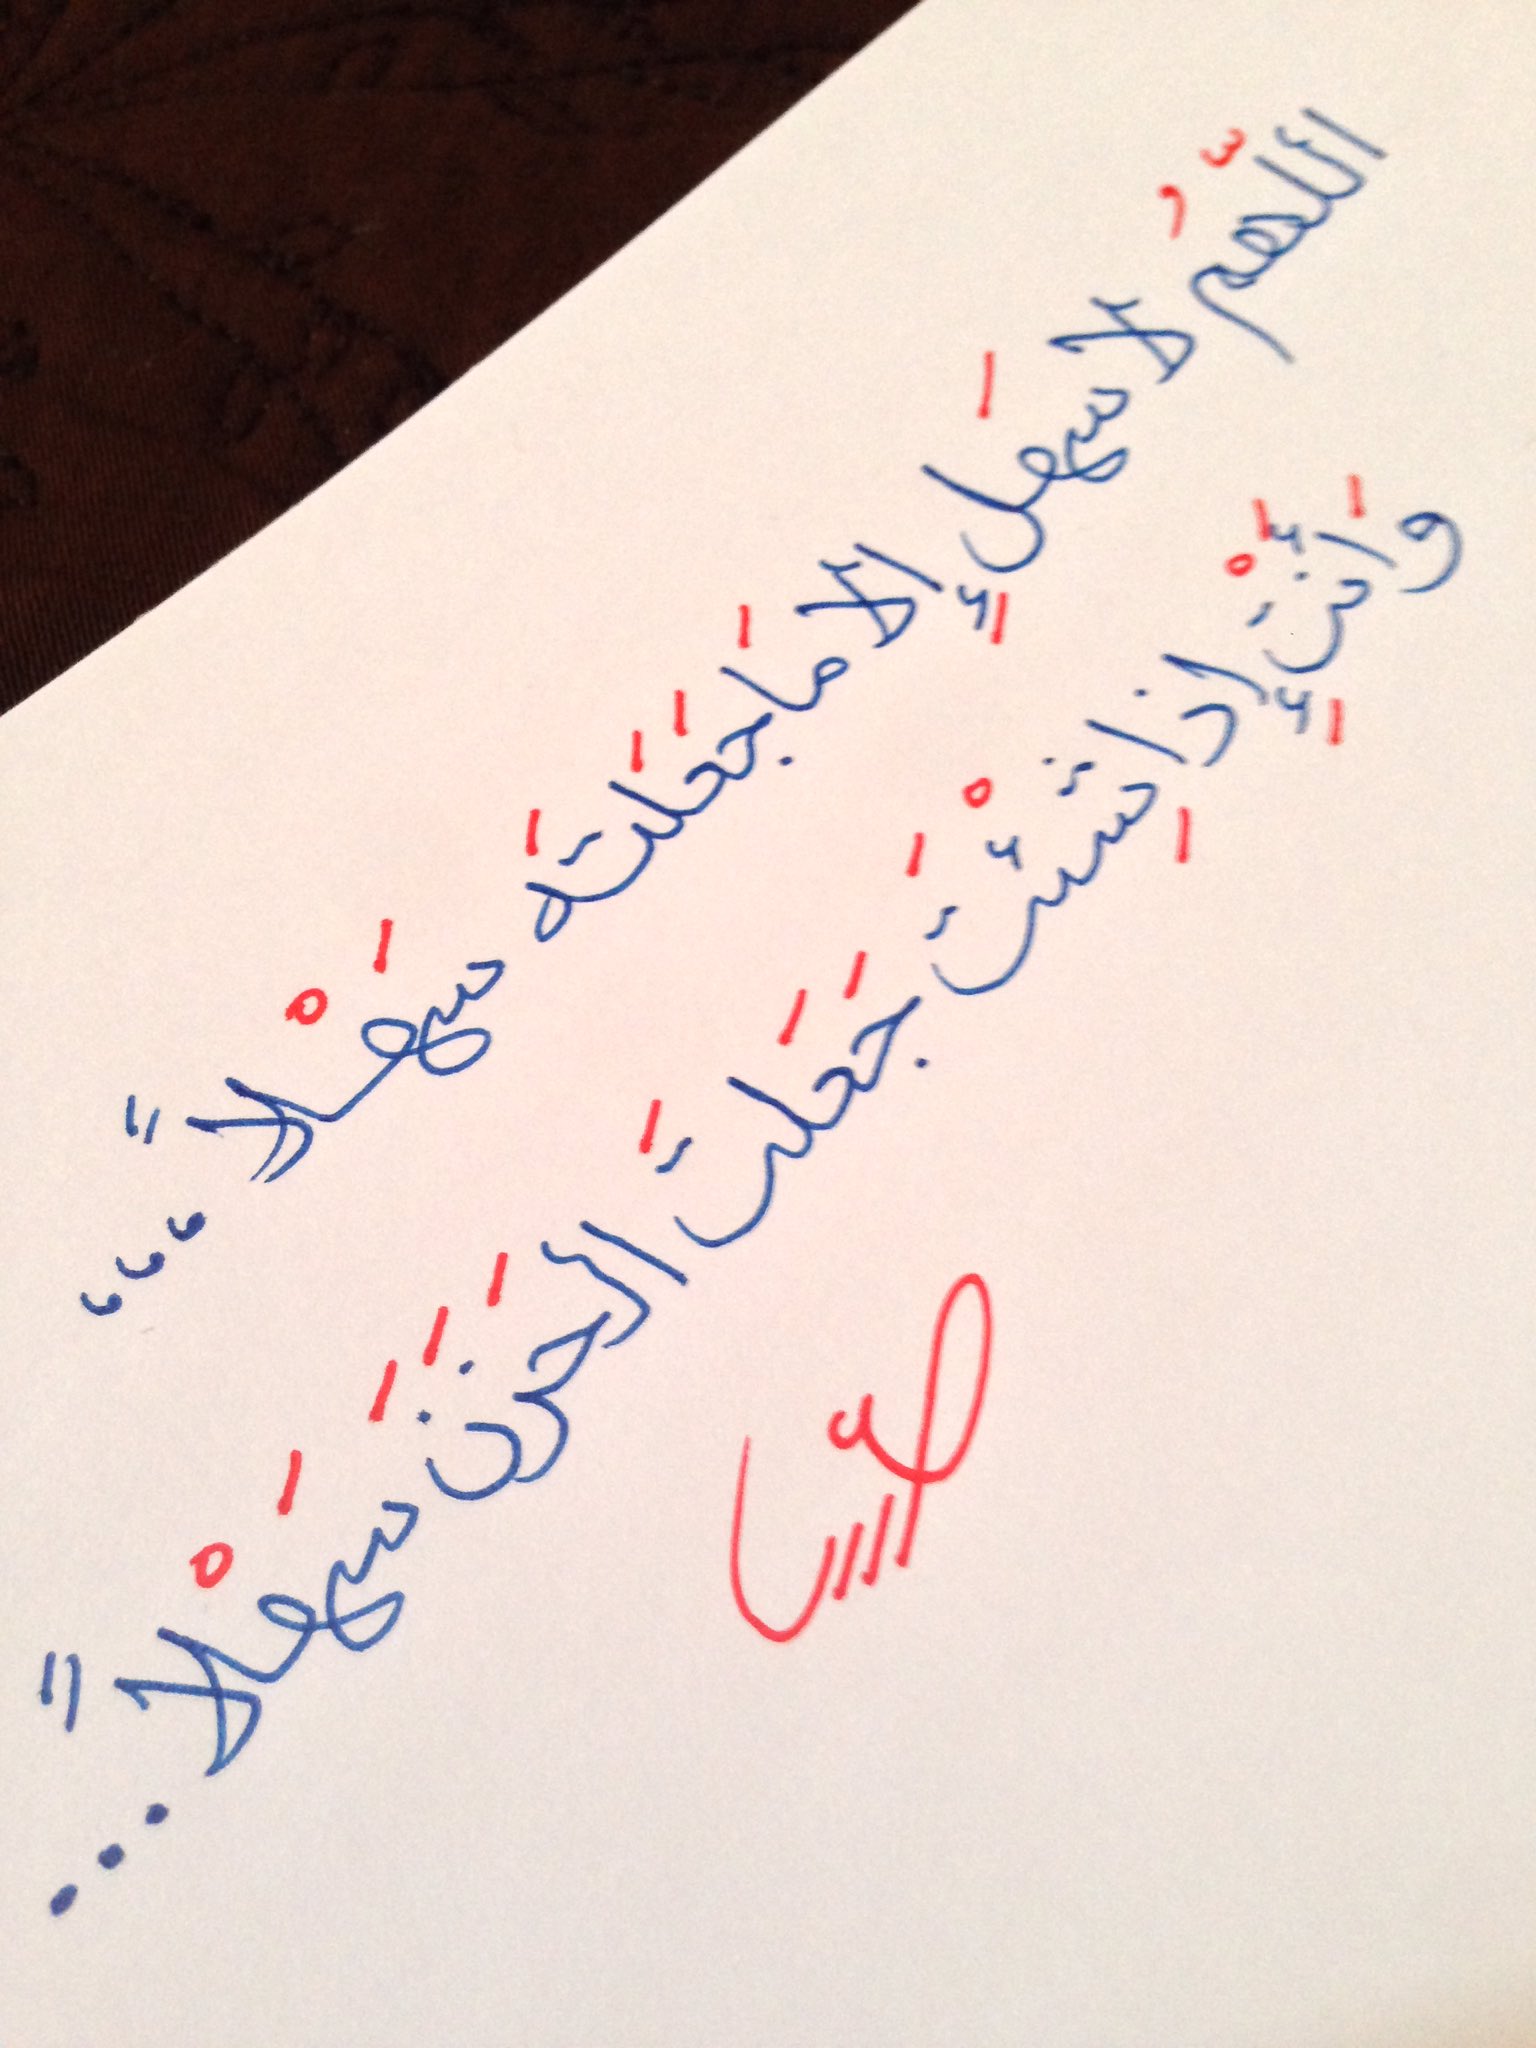 اللهمّ لا سهلَ إلا مَا جَعَلتَه سَهْلاً ،،،
وَأنْتَ إِذا شِئْتَ جَعَلتَ الحَزَنَ سَهْلاً ...